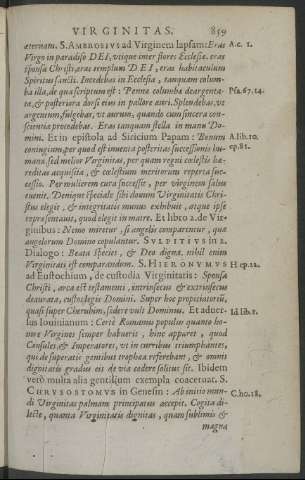 VIRGINITAS. 859
æternam. S. AMBROSIVS ad Virginem lapsam: Eras A.c. 1.
Virgo in paradiso DEI, vtique inter flores Ecclesiæ. eras
sponsa Christi, eras templum DEI, eras habitaculum
Spiritus sancti. Incedebas in Ecclesia, tanquam colum-
ba illa, de qua scriptum est: Pennæ columbæ deargenta- Psa. 67. 14.
tæ, & posteriora dorsi eius in pallore auri. Splendebas, vt
argentum, fulgebas, vt aurum, quando cum sincera con-
scientia procedebas. Eras tanquam stella in manu Do-
mini. Et in epistola ad Siricium Papam: Bonum A. lib. 10.
coniugium, per quod est inuenta posteritas successionis hu- ep. 81.
manæ. sed melior Virginitas, per quam regni cœlestis hæ-
reditas acquisita, & cœlestium meritorum reperta suc-
cessio. Per mulierem cura successit, per virginem salus
euenit. Denique speciale sibi donum Virginitatis Chri-
stus elegit, & integritatis munus exhibuit, atque ipse
repræsentauit, quod elegit in matre. Et libro 2. de Vir-
ginibus: Nemo miretur, si angelis comparentur, quæ
angelorum Domino copulantur. SVLPITIVS in 2.
Dialogo: Beata species, & Deo digna. nihil enim
Virginitati est comparandum. S. HIERONYMVS H ep. 22.
ad Eustochium, de custodia Virginitatis: Sponsa
Christi, arca est testamenti, intrinsecus & extrinsecus
deaurata, custos legis Domini. Super hoc propitiatorium,
quasi super Cherubim, sedere vult Dominus. Et aduer- Id. lib. 1.
sus Iouinianum: Certè Romanus populus quanto ho-
nore Virgines semper habuerit, hinc apparet, quod
Consules, & Imperatores, vt in curribus triumphantes,
qui de superatis gentibus trophæa referebant, & omnis
dignitatis gradus eis de via cedere solitus sit. Ibidem
verò multa alia gentilium exempla coaceruat. S.
CHRYSOSTOMVS in Genesim: Ab initio mun- C. ho. 18.
di Virginitas palmam principatus accepit. Cogita di-
lecte, quanta Virginitatis dignitas, quam sublimis &
magna